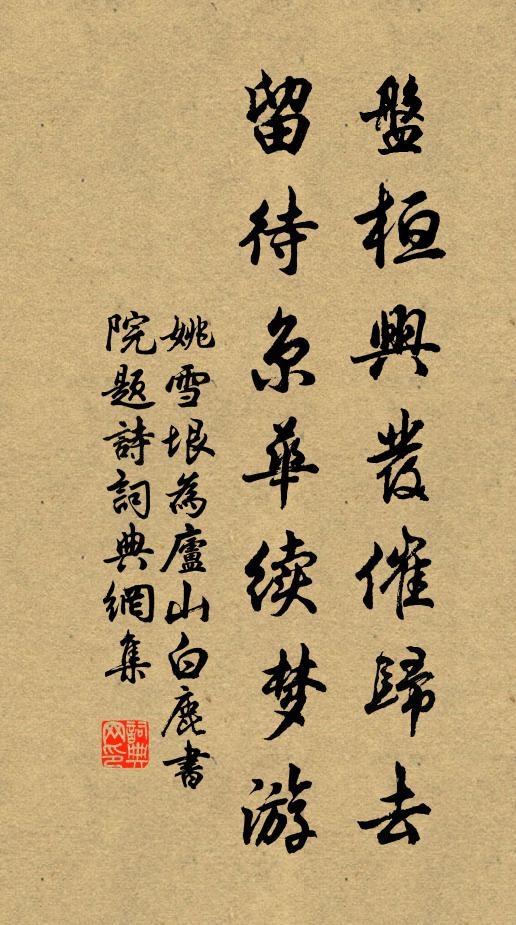 盤桓興發催歸去
留待京華续梦游
姚雪垠為廬山白鹿書
院題詩詞典網集
詞典
网印